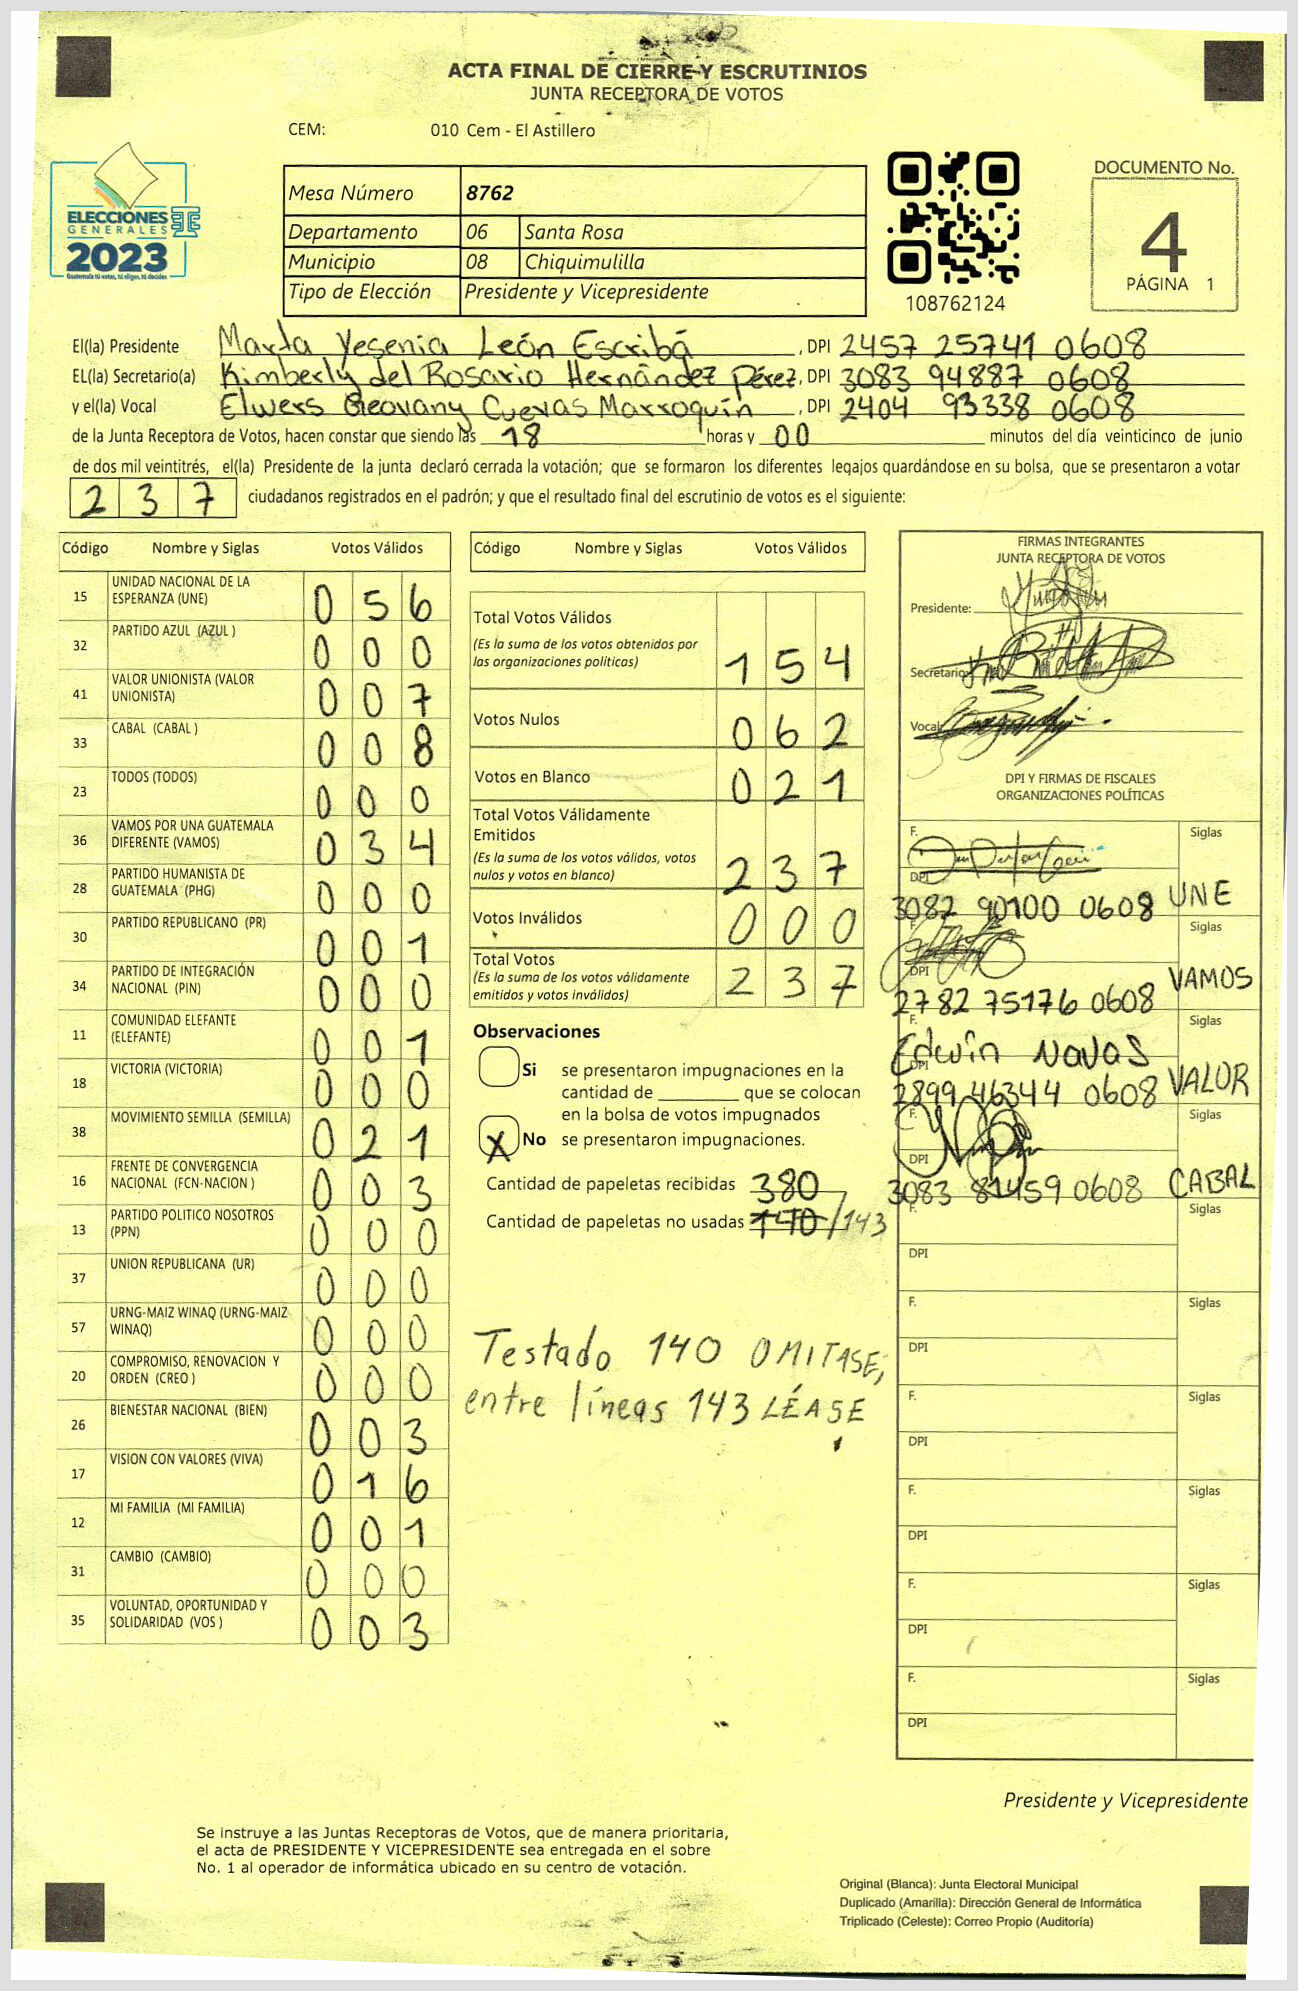 ACTA FINAL DE CIERRE Y ESCRUTINIOS
JUNTA RECEPTORA DE VOTOS
CEM: 010 Cem - El Astillero
ELECCIONES
GENERALES
2023
Guatemala tú votas, tú eliges, tú decides
Mesa Número 8762
Departamento 06 Santa Rosa
Municipio 08 Chiquimulilla
Tipo de Elección Presidente y Vicepresidente
108762124
DOCUMENTO No.
4
PÁGINA 1
El(la) Presidente Marta Yesenia León Escribá, DPI 2457 25741 0608
EL(la) Secretario(a) Kimberly del Rosario Hernández Pérez, DPI 3083 94887 0608
y el(la) Vocal Elwers Geovany Cuevas Marroquín, DPI 2404 93338 0608
de la Junta Receptora de Votos, hacen constar que siendo las 18 horas y 00 minutos del día veinticinco de junio
de dos mil veintitrés, el(la) Presidente de la junta declaró cerrada la votación; que se formaron los diferentes legajos guardándose en su bolsa, que se presentaron a votar
237 ciudadanos registrados en el padrón; y que el resultado final del escrutinio de votos es el siguiente:
Código Nombre y Siglas Votos Válidos
15 UNIDAD NACIONAL DE LA ESPERANZA (UNE) 056
32 PARTIDO AZUL (AZUL ) 000
41 VALOR UNIONISTA (VALOR UNIONISTA) 007
33 CABAL (CABAL ) 008
23 TODOS (TODOS) 000
36 VAMOS POR UNA GUATEMALA DIFERENTE (VAMOS) 034
28 PARTIDO HUMANISTA DE GUATEMALA (PHG) 000
30 PARTIDO REPUBLICANO (PR) 001
34 PARTIDO DE INTEGRACIÓN NACIONAL (PIN) 000
11 COMUNIDAD ELEFANTE (ELEFANTE) 001
18 VICTORIA (VICTORIA) 000
38 MOVIMIENTO SEMILLA (SEMILLA) 021
16 FRENTE DE CONVERGENCIA NACIONAL (FCN-NACION ) 003
13 PARTIDO POLITICO NOSOTROS (PPN) 000
37 UNION REPUBLICANA (UR) 000
57 URNG-MAIZ WINAQ (URNG-MAIZ WINAQ) 000
20 COMPROMISO, RENOVACION Y ORDEN (CREO ) 000
26 BIENESTAR NACIONAL (BIEN) 003
17 VISION CON VALORES (VIVA) 016
12 MI FAMILIA (MI FAMILIA) 001
31 CAMBIO (CAMBIO) 000
35 VOLUNTAD, OPORTUNIDAD Y SOLIDARIDAD (VOS ) 003
Código Nombre y Siglas Votos Válidos
Total Votos Válidos 154
(Es la suma de los votos obtenidos por
las organizaciones políticas)
Votos Nulos 062
Votos en Blanco 021
Total Votos Válidamente
Emitidos 237
(Es la suma de los votos válidos, votos
nulos y votos en blanco)
Votos Inválidos 000
Total Votos 237
(Es la suma de los votos válidamente
emitidos y votos inválidos)
Observaciones
Si se presentaron impugnaciones en la
cantidad de ________ que se colocan
en la bolsa de votos impugnados
X No se presentaron impugnaciones.
Cantidad de papeletas recibidas 380
Cantidad de papeletas no usadas 140/143
Testado 140 OMITASE,
entre líneas 143 LÉASE
FIRMAS INTEGRANTES
JUNTA RECEPTORA DE VOTOS
Presidente:
Secretario:
Vocal:
DPI Y FIRMAS DE FISCALES
ORGANIZACIONES POLÍTICAS
F. Siglas
DPI 3082 90100 0608 UNE
F. Siglas
DPI 2782 75176 0608 VAMOS
F. Edwin Navas Siglas
DPI 2899 46344 0608 VALOR
F. Siglas
DPI 3083 81459 0608 CABAL
F. Siglas
DPI
F. Siglas
DPI
F. Siglas
DPI
F. Siglas
DPI
F. Siglas
DPI
F. Siglas
DPI
Presidente y Vicepresidente
Se instruye a las Juntas Receptoras de Votos, que de manera prioritaria,
el acta de PRESIDENTE Y VICEPRESIDENTE sea entregada en el sobre
No. 1 al operador de informática ubicado en su centro de votación.
Original (Blanca): Junta Electoral Municipal
Duplicado (Amarilla): Dirección General de Informática
Triplicado (Celeste): Correo Propio (Auditoría)